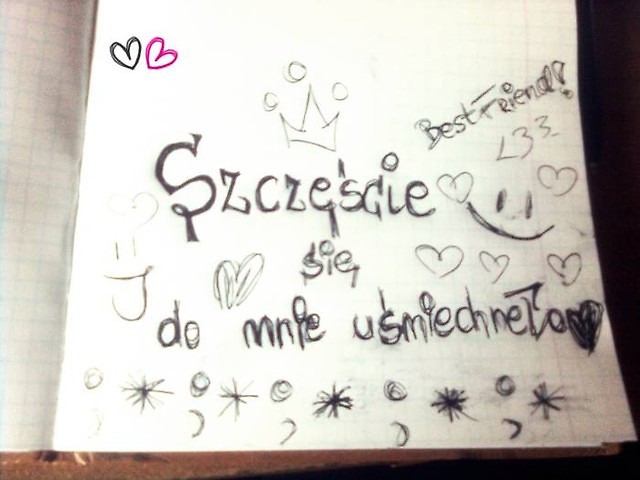 Best Friend!
<33
Szczęście
się
do mnie uśmiechneło